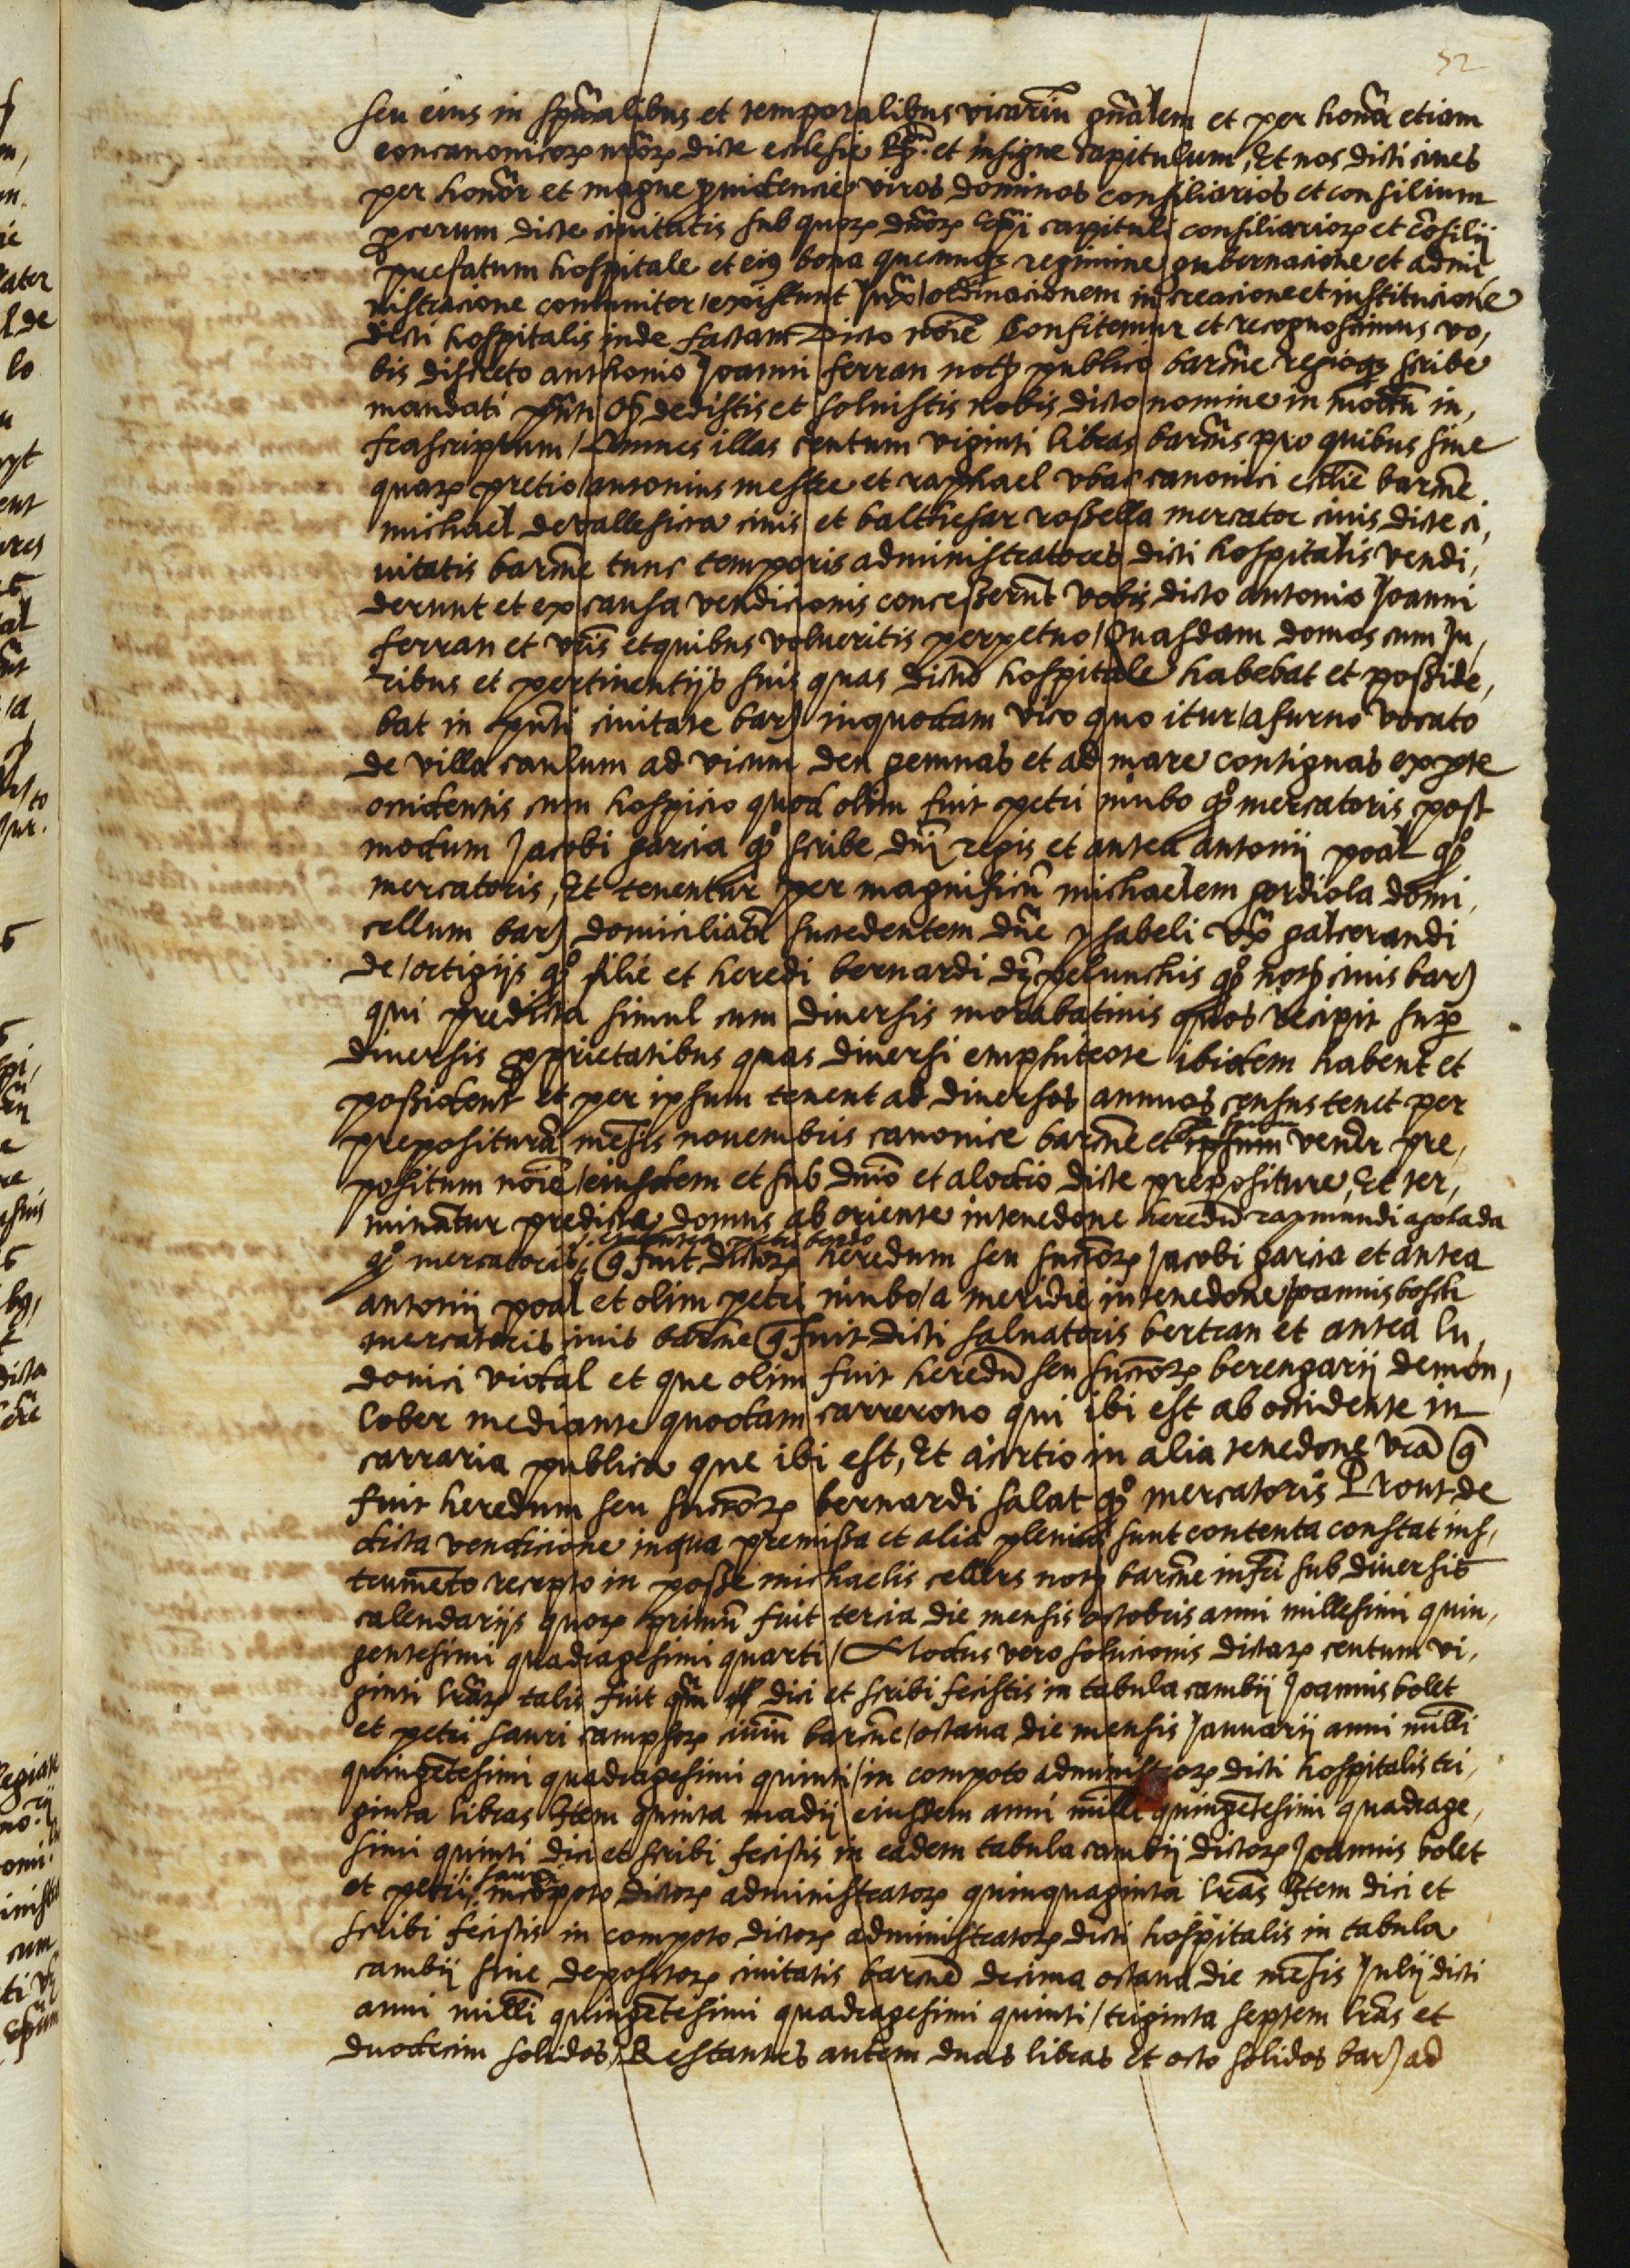 52
seu eius in spũalibus et temporalibus vicariũ gñalem et per honor̃ etiam
concanonicoꝝ nr̃oꝝ dicte ecclesie Rᷓ. et insigne capitulum, Et nos dicti cives
per honor̃ et magne ꝓvidencie viros dominos consiliarios et consilium
ꝓcerum dicte civitatis sub quoꝝ dñoꝝ epĩ capituli consiliarioꝝ et cõsilij
prefatum hospitale et eiꝰ bona quecunqꝫ regimine gubernacione et admi,
nistracione comuniter existunt Juxᵃ ordinacionem in creacione et institucione
dicti hospitalis inde factam Dicto noĩe Confitemur et recognoscimus vo,
bis discreto anthonio Joanni ferran notᵒ publico barcñe regioqꝫ scribe
mandati pñti qꝫ dedistis et solvistis nobis dicto nomine in modũ in,
frascriptum / Omnes illas centum viginti libras barcñs pro quibus sive
quaꝝ pretio antonius mestre et raphael ubac canonici ecclĩe barcñe
michael de vallesicra civis et balthesar rossella mercator civis dicte ci,
vitatis barcñe tunc temporis administratores dicti hospitalis vendi,
derunt et ex causa vendicionis concesserunt vobis dicto antonio Joanni
ferran et vr̃is et quibus volueritis perpetuo / Quasdam domos cum Ju,
ribus et pertinentijs suis quas dictũ hospitale habebat et posside,
bat in pñti civitate barᷓ in quodam vico quo itur / a furno vocato
de villa caulum ad vicum den gemnas et ad mare contiguas ex pte
occidentis cum hospicio quod olim fuit petri nubo qº mercatoris post
modum Jacobi garcia qº scribe dñi regis et antea antonij poal qº
mercatoris, Et tenentur per magnificũ michaelem gordiola domi,
cellum barᷓ domiciliatũ succedentem dñe ysabeli uxᵒ galcerandi
de ortigijs qº filie et heredi bernardi dꝫ pelunchis qº notᵒ civis barᷓ
qui predicta simul cum diversis morabatinis quos recipit sup
diversis ꝓprietatibus quas diversi emphiteote ibidem habent et
possident et per ipsum tenent ad diversos annuos census tenet per
prepositurã mẽsis novembris canonice barcñe et ipsum vener̃ pre,
positum noĩe eiusdem et sub dnĩo et alodio dicte prepositure, Et ter,
minãtur predicte domus ab oriente in tenedone heredũ raymundi apolada
qº mercatoris q̃ fuit dictoꝝ heredum seu succoꝝ Jacobi garcia et antea
antonij poal et olim petri nubo / a meridie in tenedone Joannis bosch
mercatoris civis barcñe q̃ fuit dicti salvatoris bertran et antea lu,
dovici vidal et que olim fuit heredũ seu succoꝝ berengarij de mon,
lober mediante quodam carrerono qui ibi est ab occidente in
carraria publica que ibi est, Et a circio in alia tenedone vr̃a q̃
fuit heredum seu succoꝝ bernardi salat qº mercatoris Prout de
dicta vendicione in qua premissa et alia plenius sunt contenta constat ins,
trumẽto recepto in posse michaelis cellers notᵒ barcñe infr̃i sub diversis
calendarijs quoꝝ primũ fuit tercia die mensis octobris anni millesimi quin,
gentesimi quadragesimi quarti / Modus vero solucionis dictaꝝ centum vi,
ginti lr̃aꝝ talis fuit qm̃ dici et scribi fecistis in tabula cambij Joannis bolet
et petri sauri campsoꝝ civiũ barcñe / octava die mensis Januarij anni milli
quingẽtesimi quadragesimi quinti / in compoto administroꝝ dicti hospitalis tri,
ginta libras Item quinta madij eiusdem anni milli quingẽtesimi quadrage,
simi quinti dici et scribi fecistis in eadem tabula cambij dictoꝝ Joannis bolet
et petri sauri in cõpoto dictoꝝ administratoꝝ quinquaginta lr̃as Item dici et
scribi fecistis in compoto dictoꝝ administratoꝝ dicti hospitalis in tabula
cambij sive depositoꝝ civitatis barcñe decima octava die mẽsis Julij dicti
anni milli quingẽtesimi quadragesimi quinti / triginta septem lr̃as et
duodecim solidos, Restantes autem duas libras et octo solidos barᷓ ad